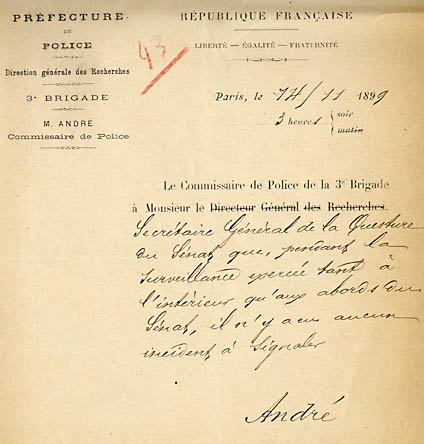 PRÉFECTURE
DE
POLICE
Direction générale des Recherches
3e BRIGADE
M. ANDRÉ
Commissaire de Police
43
RÉPUBLIQUE FRANÇAISE
LIBERTÉ — ÉGALITÉ — FRATERNITÉ
Paris, le 14/11 1899
3 heures { soir
matin
Le Commissaire de Police de la 3e Brigade
à Monsieur le Directeur Général des Recherches.
Secrétaire Général de la Questure
du Sénat que, pendant la
surveillance exercée tant à
l'intérieur qu'aux abords du
Sénat, il n'y a eu aucun
incident à signaler
André